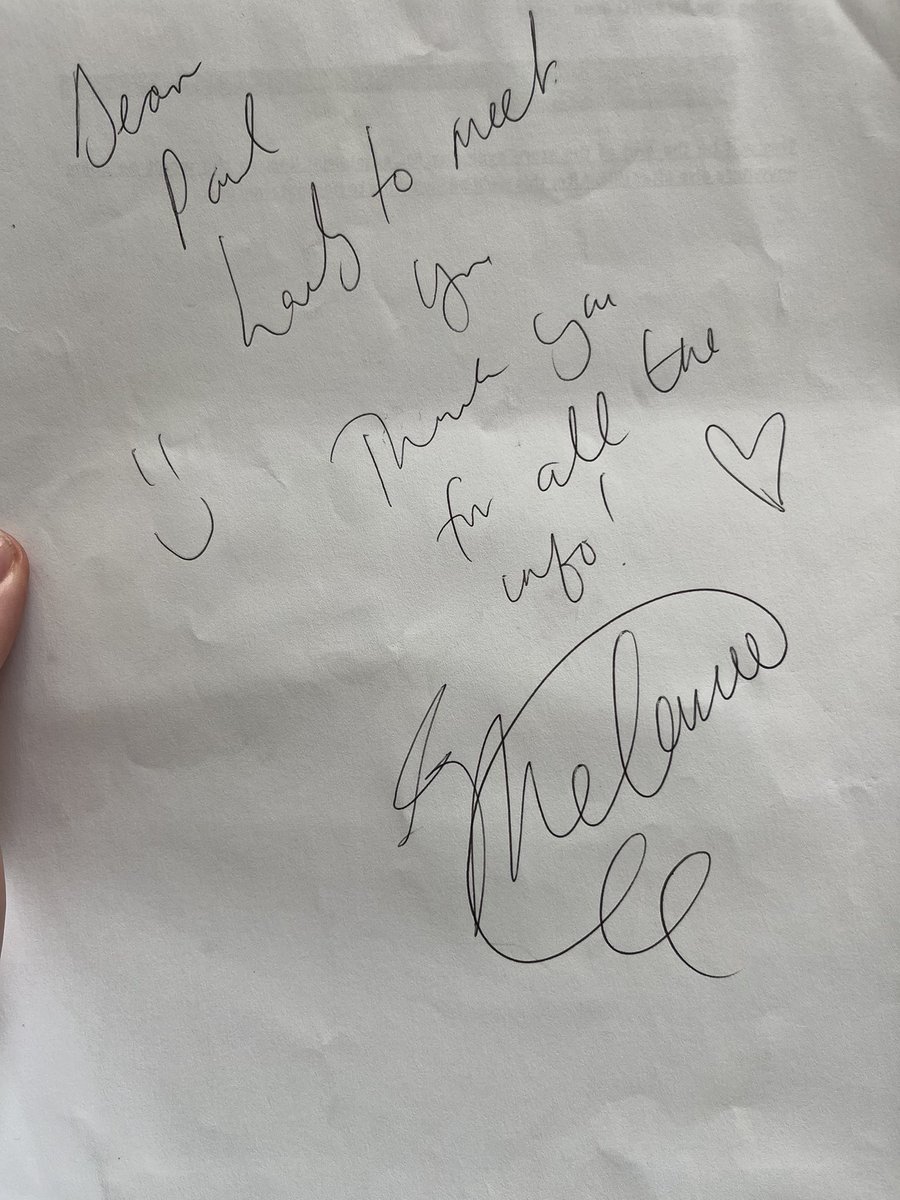 Dear
Paul
Lovely to meet
you
Thank you
for all the
info!
Melanie